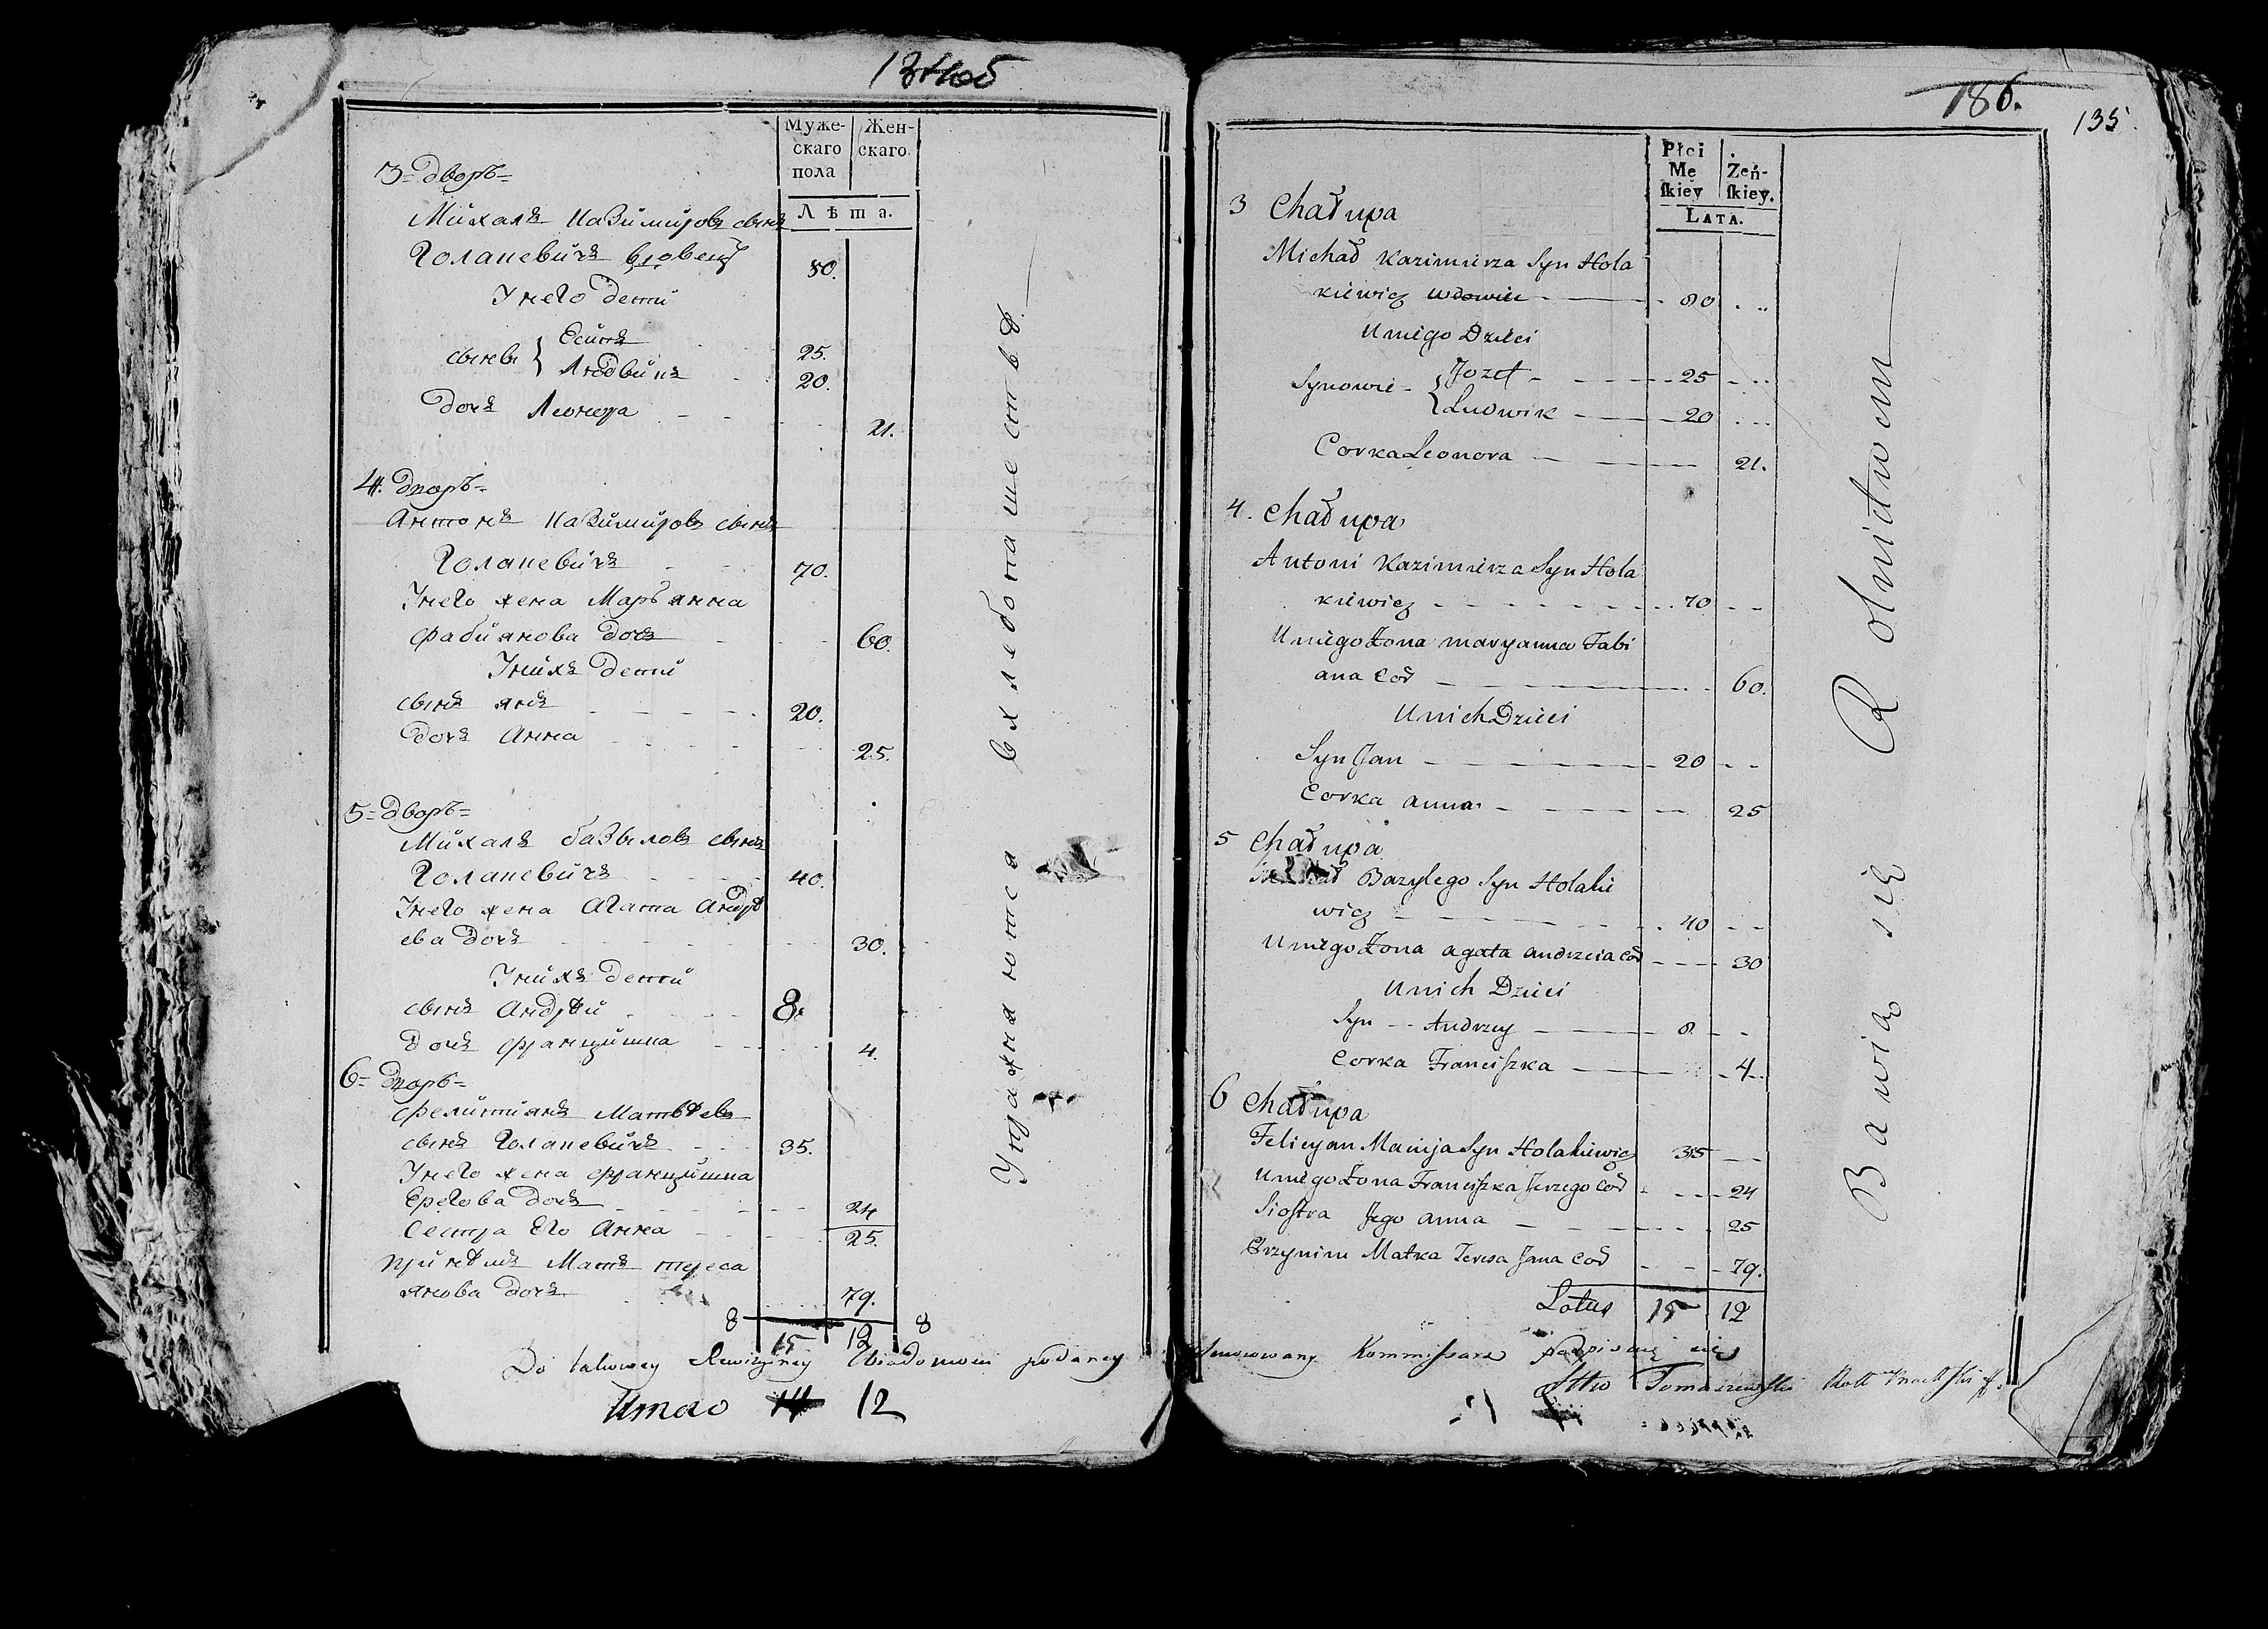 Муже-
скаго
пола
Жен-
скаго.
Лѣта.
3=дворъ=
Михалъ Казимировъ сынъ
Голакевичъ вдовецъ 80.
У него дети
сыновья { Есипъ 25.
Людвикъ 20.
дочь Леонора 21.
4. дворъ=
Антонъ Казимировъ сынъ
Голакевичъ 70.
У него жена Марьянна
Фабиянова дочь 60.
У нихъ дети
сынъ янъ 20.
дочь Анна 25.
5=дворъ=
Михалъ базылевъ сынъ
Голакевичъ 40.
У него жена Агата Андрѣ
ева дочь 30.
У нихъ дети
сынъ Андрѣй 8.
дочь Францишка 4.
6=дворъ=
Фелициянъ Матвѣевъ
сынъ Голакевичъ 35.
У него жена Францишка
Ерегова дочь 24
Сестра Его Анна 25.
при нѣмъ Мать тереса
янова дочь 79.
8 15 12 8
Упражняются в хлебопашествѣ
Do takowey Rewizyiney Wiadomości podaney
12
186.
135.
Płci
Mę
skiey
Żeń-
skiey.
LATA.
3 Chałupa
Michał Kazimierza Syn Hola
kiewicz wdowiec 80
U niego Dzieci
Synowie { Jozef 25
Ludwik 20
Corka Leonora 21.
4. Chałupa
Antoni Kazimierza Syn Hola
kiewicz 70
U niego Żona maryanna Fabi
ana Cor 60.
U nich Dzieci
Syn Jan 20
Corka anna 25
5 Chałupa
Michał Bazylego Syn Holakie
wicz 40
U niego Żona agata andrzeia Cor 30
U nich Dzieci
Syn Andrzey 8
Corka Franciszka 4
6 Chałupa
Felicyan Macieja Syn Holakiewicz 35
U niego Żona Franciszka Jerzego Cor 24
Siostra Jego anna 25
Przynim Matka Teresa Jana Cor 79.
Latus 15 12
Bawią się Rolnictwem
Kommissarz podpisuię się
Tomaszewski